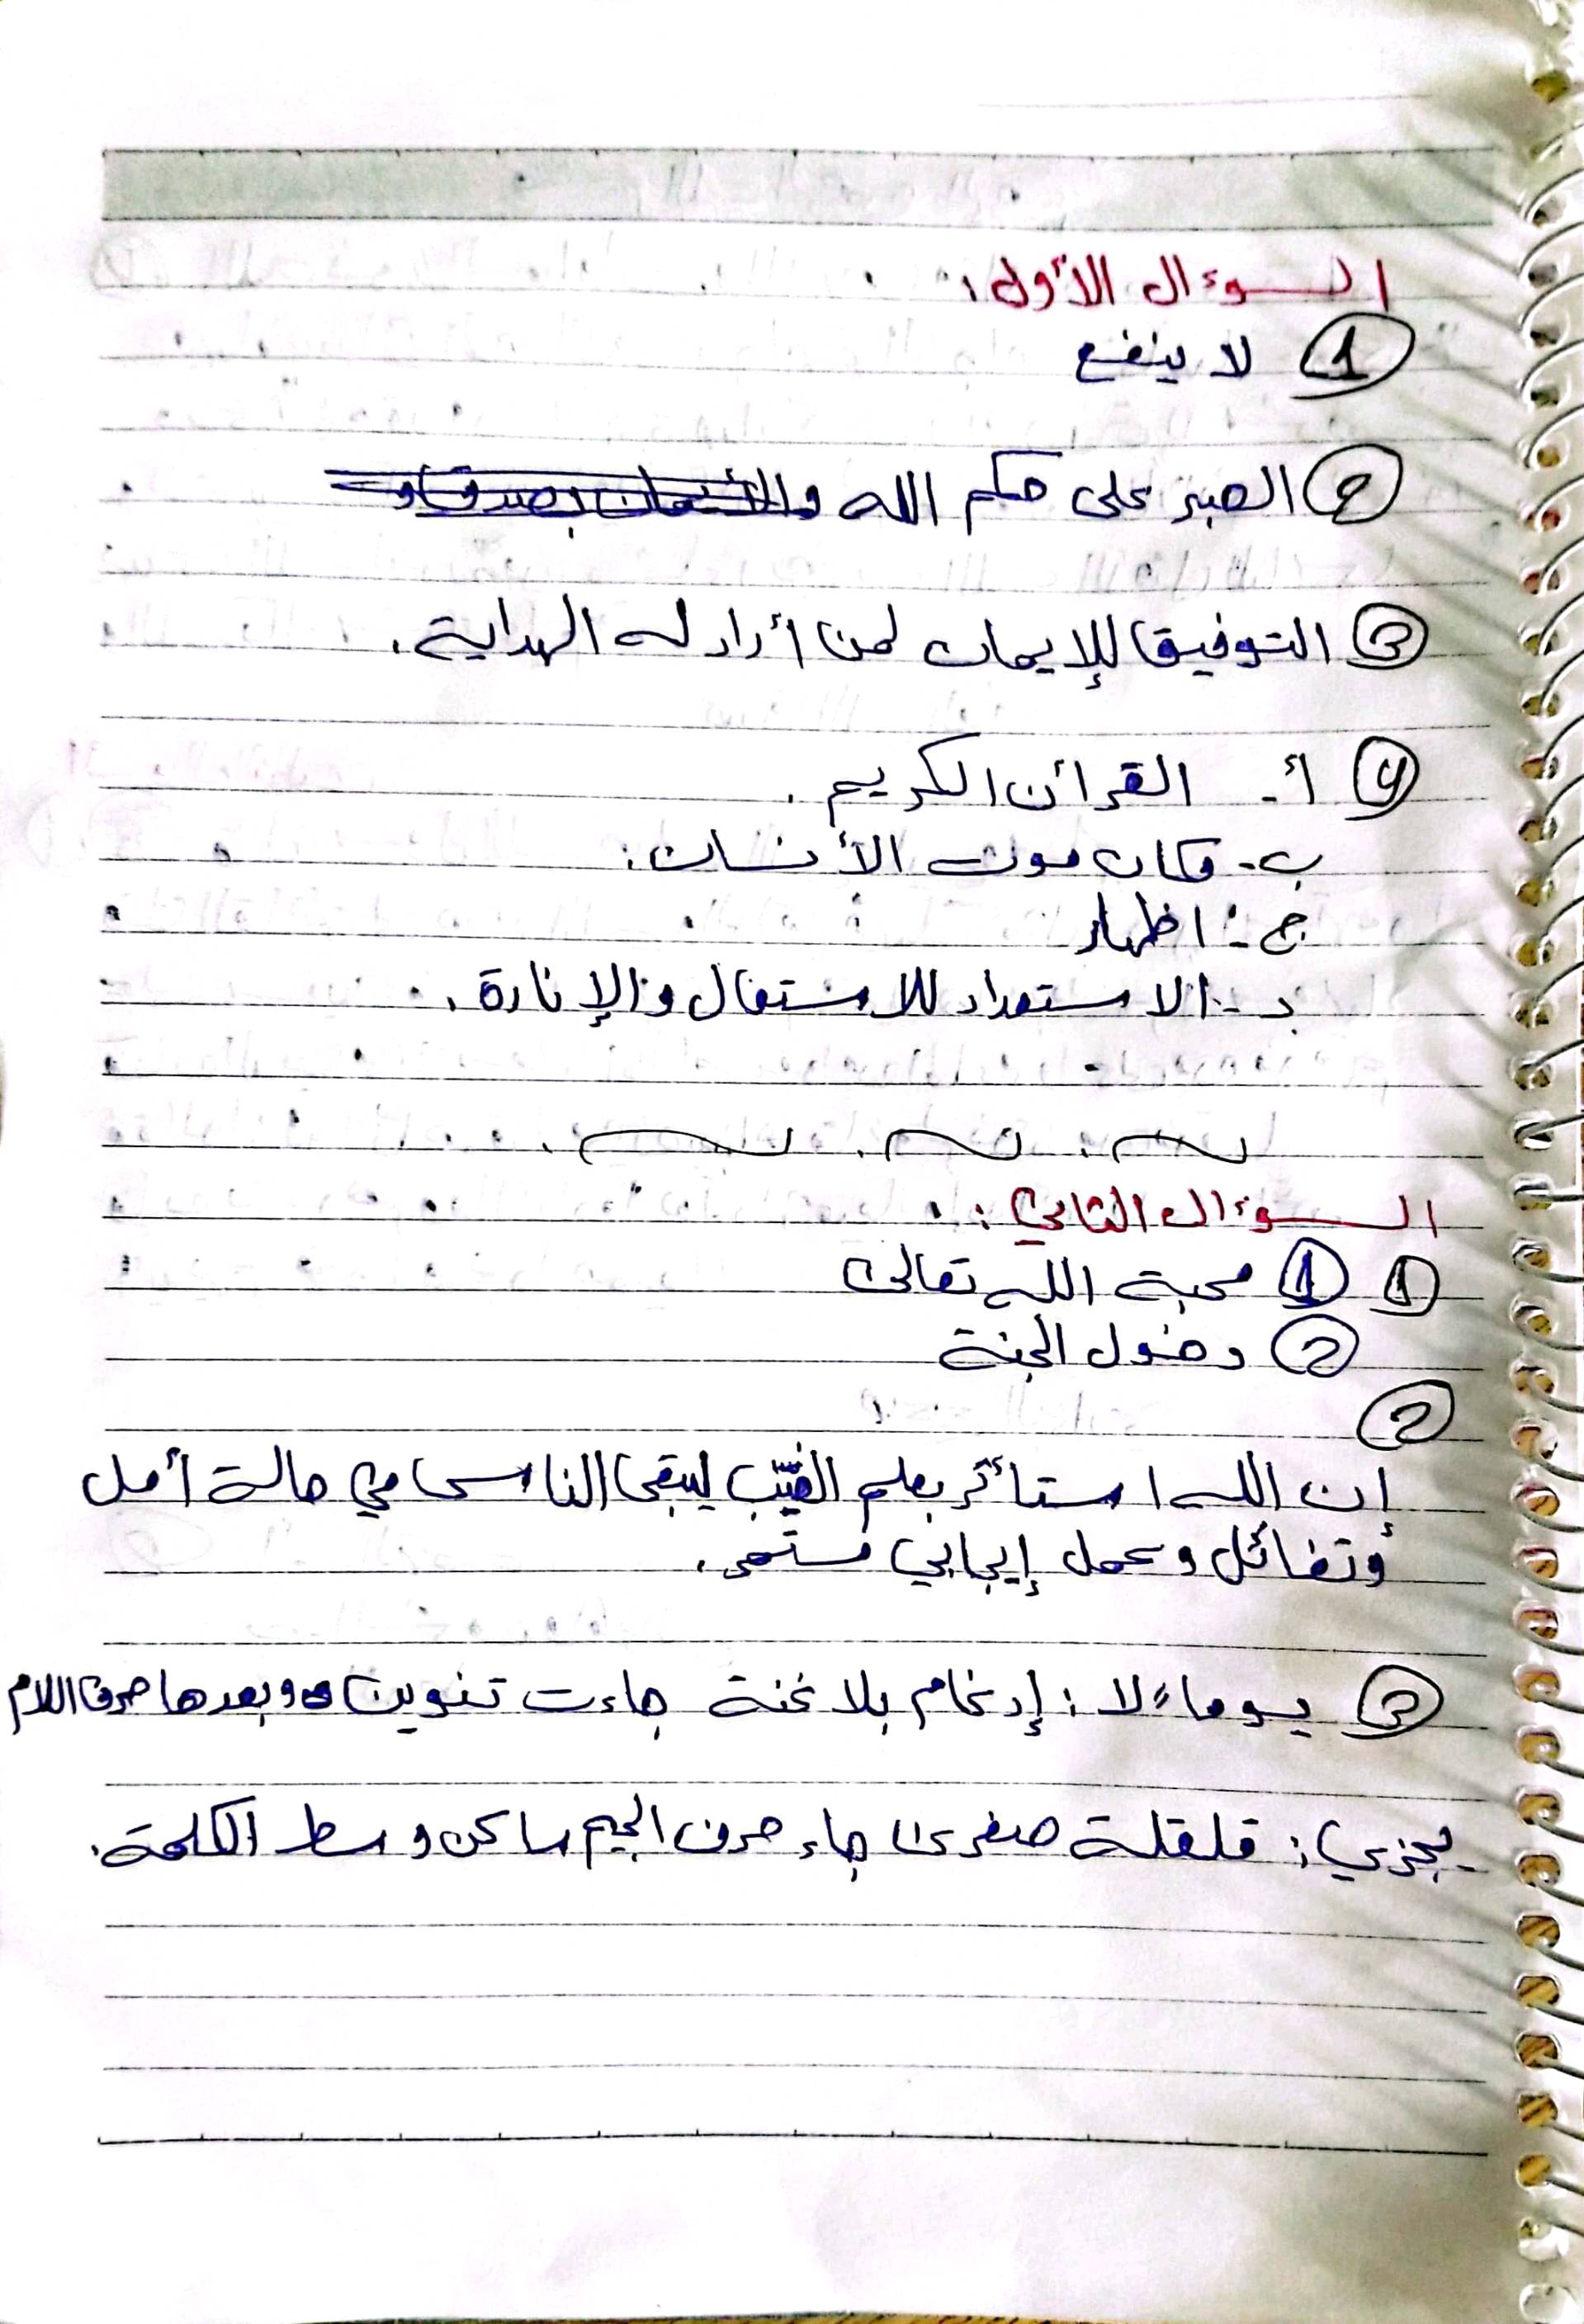 السؤال الأول:
① لا ينفع
② الصبر على حكم الله
③ التوفيق للإيمان لمن أراد له الهداية.
④ أ- القرأن الكريم.
ب- مكان موت الأنسان.
ج- اظهار
د- الاستعداد للاشتعال والإنارة.
السؤال الثاني:
① ① محبة الله تعالى
② دخول الجنة
②
إن الله استأثر بعلم الغيب ليبقى الناس في حالة أمل
وتفائل وعمل إيجابي مستمر.
③ يوماً لا: إدغام بلا غنة جاءت تنوين وبعدها حرف اللام
يجزي: قلقلة صغرى جاء حرف الجيم ساكن وسط الكلمة.